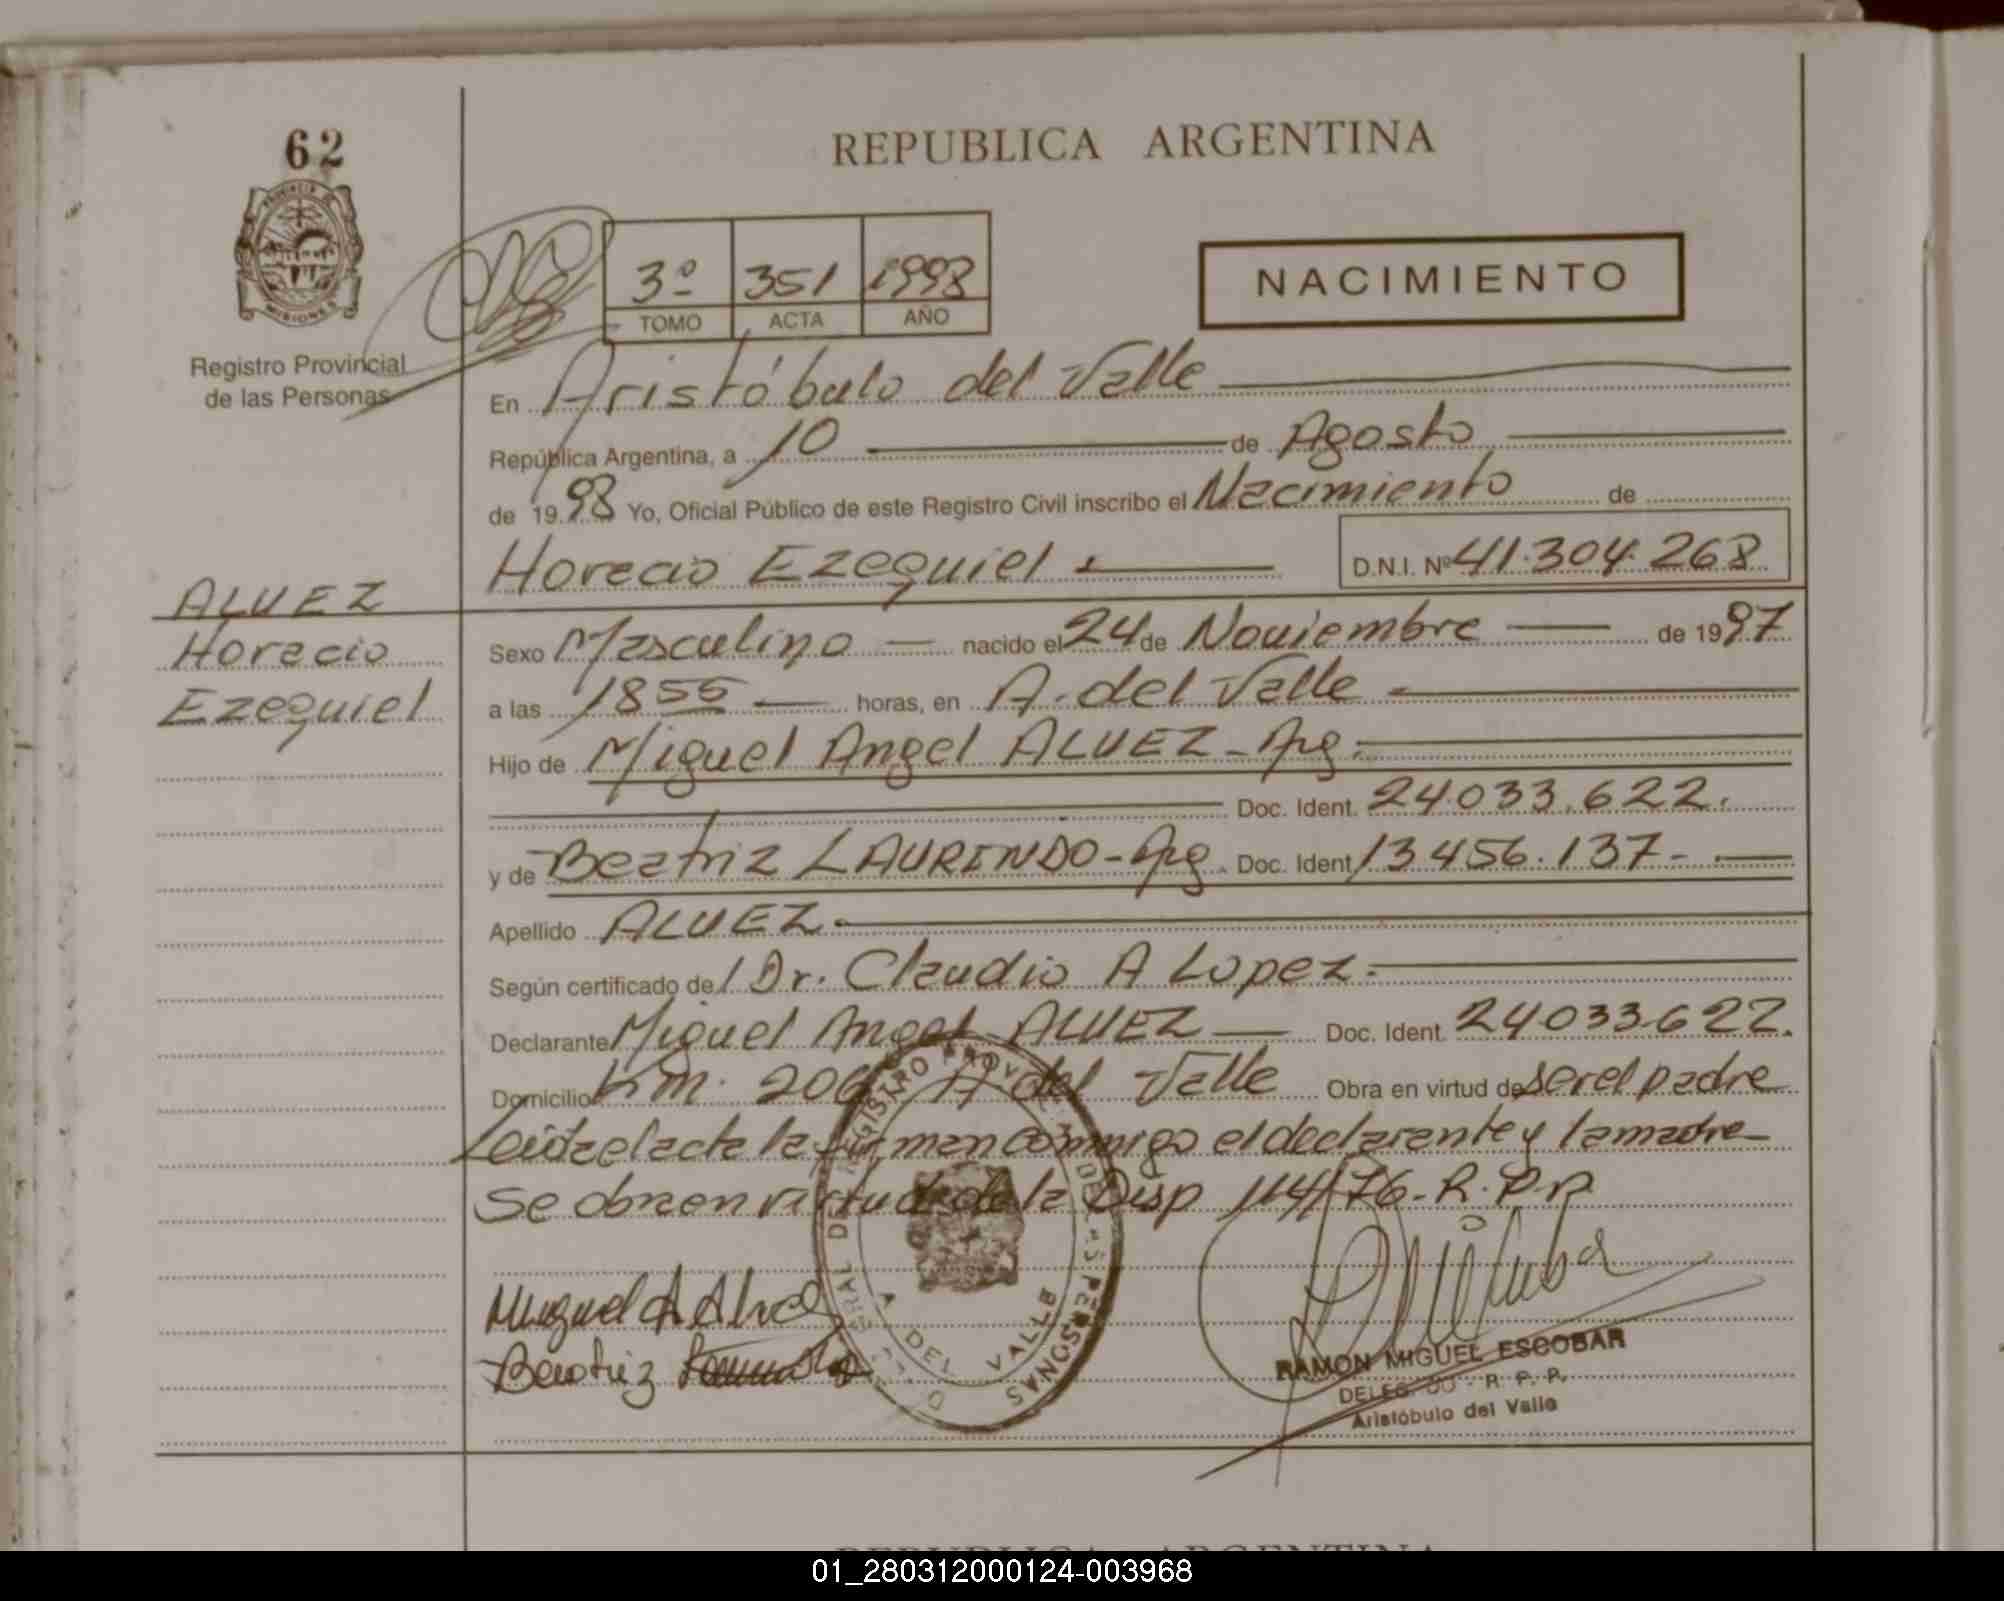 62
REPUBLICA ARGENTINA
PROVINCIA DE
MISIONES
Registro Provincial
de las Personas
3º 351 1998
TOMO ACTA AÑO
NACIMIENTO
En Aristóbulo del Valle
República Argentina, a 10 de Agosto
de 1998 Yo, Oficial Público de este Registro Civil inscribo el Nacimiento de
Horacio Ezequiel D.N.I. Nº 41.304.268
ALVEZ
Horacio
Ezequiel
Sexo Masculino nacido el 24 de Noviembre de 1997
a las 1855 horas, en A. del Valle
Hijo de Miguel Angel ALVEZ - Arg.
Doc. Ident. 24.033.622.
y de Beatriz LAURINDO - Arg. Doc. Ident 13456.137-
Apellido ALVEZ
Según certificado de Dr. Claudio A Lopez.
Declarante Miguel Angel ALVEZ Doc. Ident. 24033622.
Domicilio km. 206 A del Valle Obra en virtud de ser el padre
Leida el acta la firman conmigo el declarante y la madre
se obra en virtud de la Disp 114/76-R.P.P.
Miguel A Alvez
Beatriz
REGISTRO PROVINCIAL DE LAS PERSONAS
A. DEL VALLE
RAMON MIGUEL ESCOBAR
DELEGADO - R. P. P.
Aristóbulo del Valle
REPUBLICA ARGENTINA
01_280312000124-003968